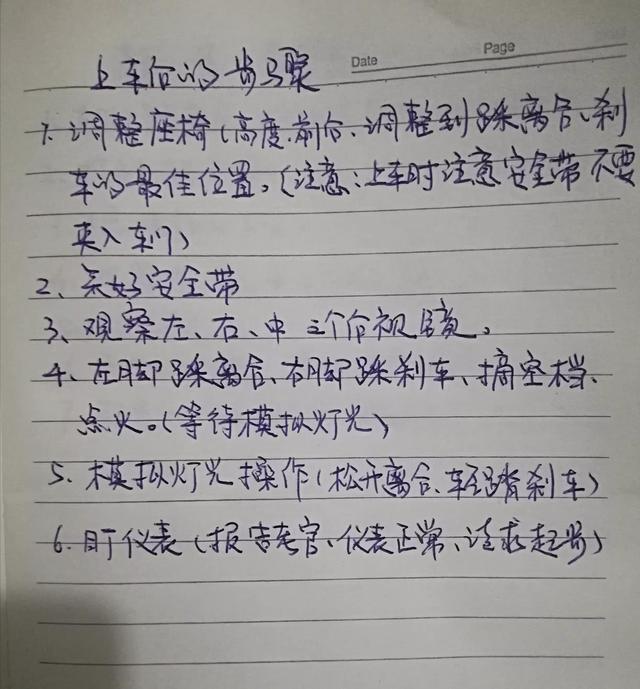 Date
Page
上车后的步骤
1、调整座椅(高度、前后、调整到踩离合、刹
车的最佳位置。(注意:上车时注意安全带不要
夹入车门)
2、系好安全带
3、观察左、右、中三个后视镜。
4、左脚踩离合、右脚踩刹车、摘空档、
点火。(等待模拟灯光)
5、模拟灯光操作(松开离合、轻踏刹车)
6、盯仪表(报告考官、仪表正常、请求起步)